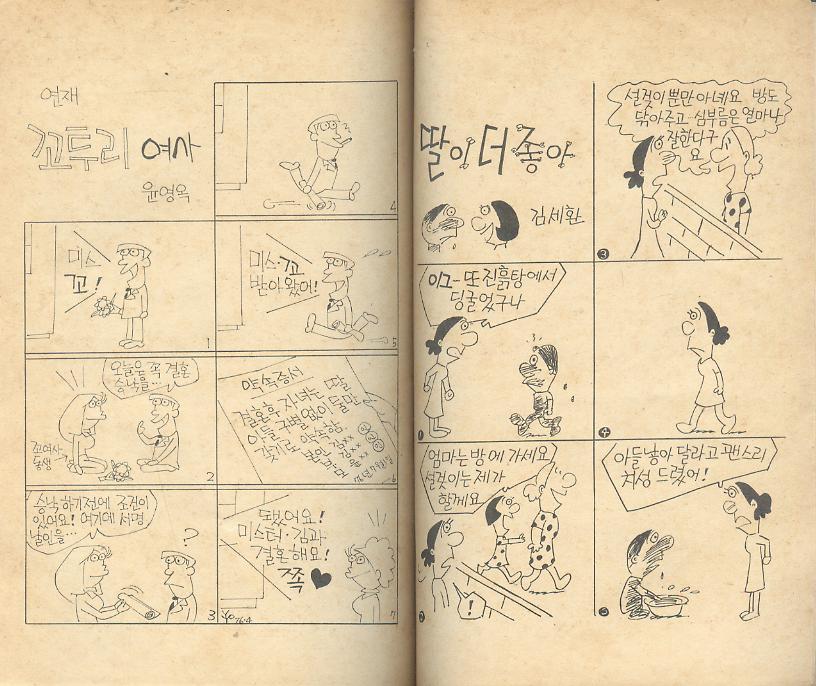 연재
꼬투리 여사
윤영옥
미스
꼬!
1
오늘은 꼭 결혼
승낙을...
꼬여사
동생
2
승낙하기전에 조건이
있어요! 여기에 서명
날인을...
?
3
4
미스 꼬
받아왔어!
5
약속증서
결혼후 자녀는 딸
아들 구별없이 둘만
갖기로 약속함.
6
돗봤어요!
미스터·김과
결혼해요!
쪽
YO 76.4
7
딸이 더 좋아
김세환
이그- 또 진흙탕에서
딩굴었구나
1
엄마는 방에 가세요
설겆이는 제가
할께요
!
2
설겆이 뿐만 아녜요 방도
닦아주고 심부름은 얼마나
잘한다구
요
3
4
아들낳아 달라고 괜스리
치성 드렸어!
5